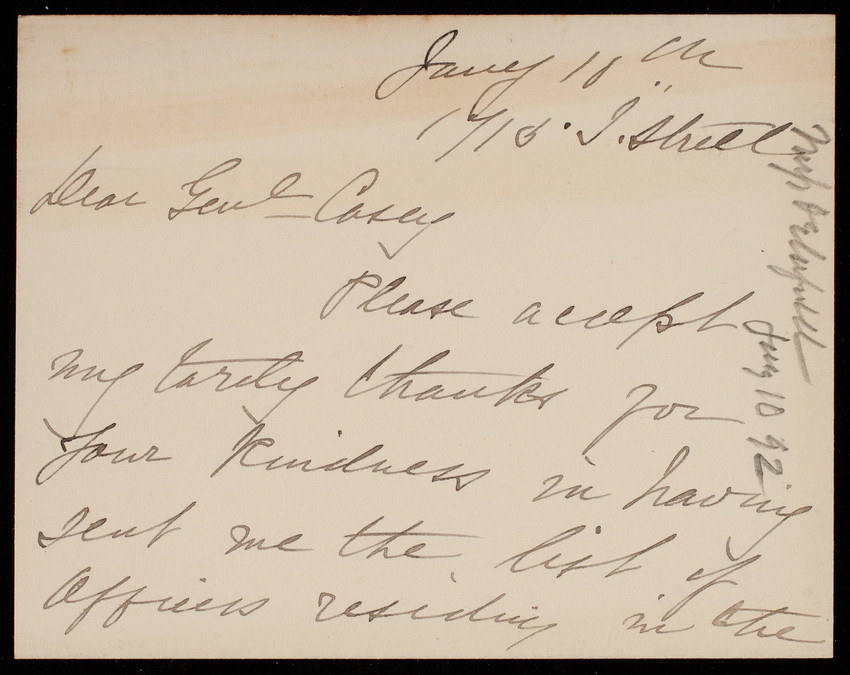 Jany 10th
1715. I. Street
Dear Genl Casey
Please accept
my tardy thanks for
your kindness in having
sent me the list of
Officers residing in the
Jany 10 92